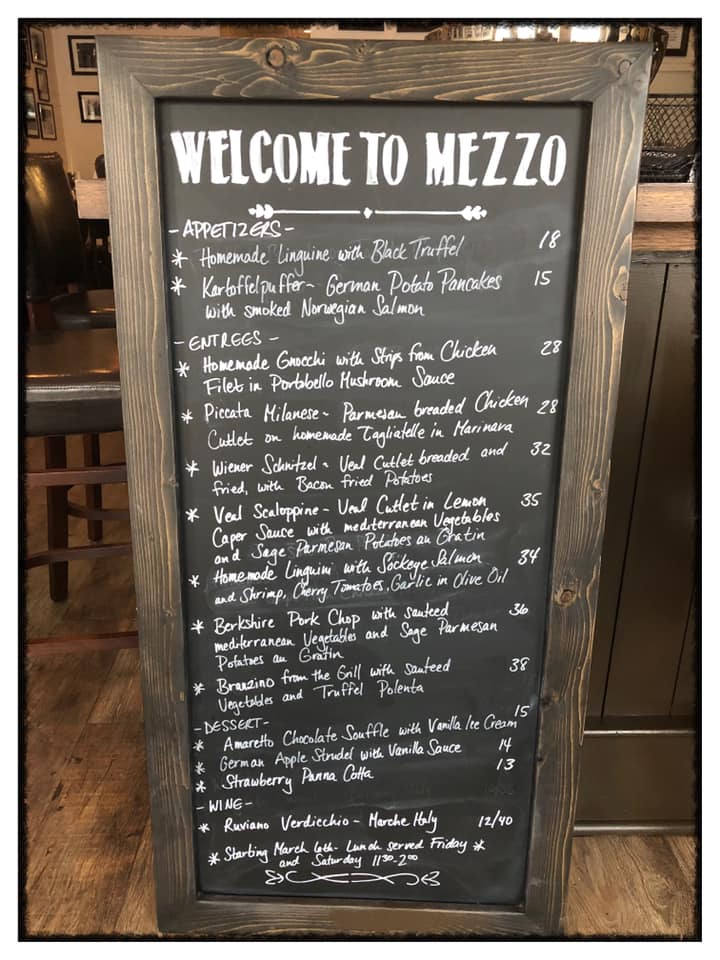 WELCOME TO MEZZO
-APPETIZERS-
* Homemade Linguine with Black Truffel 18
* Kartoffelpuffer~ German Potato Pancakes 15
with smoked Norwegian Salmon
-ENTREES-
* Homemade Gnocchi with Strips from Chicken 28
Filet in Portobello Mushroom Sauce
* Piccata Milanese~ Parmesan breaded Chicken 28
Cutlet on homemade Tagliatelle in Marinara
* Wiener Schnitzel~ Veal Cutlet breaded and 32
fried, with Bacon fried Potatoes
* Veal Scaloppine~ Veal Cutlet in Lemon 35
Caper Sauce with mediterranean Vegetables
and Sage Parmesan Potatoes au Gratin
* Homemade Linguini with Sockeye Salmon 34
and Shrimp, Cherry Tomatoes, Garlic in Olive Oil
* Berkshire Pork Chop with sauteed 36
mediterranean Vegetables and Sage Parmesan
Potatoes au Gratin
* Branzino from the Grill with sauteed 38
Vegetables and Truffel Polenta
-DESSERT-
* Amaretto Chocolate Souffle with Vanilla Ice Cream 15
* German Apple Strudel with Vanilla Sauce 14
* Strawberry Panna Cotta 13
-WINE-
* Ruviano Verdicchio~ Marche Italy 12/40
* Starting March 6th- Lunch served Friday *
and Saturday 11:30-2:00